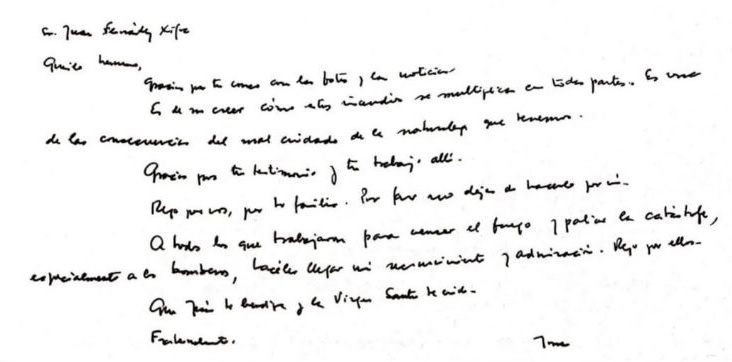 Sr. Juan Fernández Xifra
Querido hermano,
Gracias por tu correo con las fotos y las noticias
Es de no creer cómo estos incendios se multiplican en todas partes. Es una
de las consecuencias del mal cuidado de la naturaleza que tenemos.
Gracias por tu testimonio y tu trabajo allí.
Rezo por vos, por tu familia. Por favor no dejes de hacerlo por mí.
A todos los que trabajaron para vencer el fuego y paliar la catástrofe,
especialmente a los bomberos, haceles llegar mi reconocimiento y admiración. Rezo por ellos.
Que Jesús te bendiga y la Virgen Santa te cuide.
Fraternalmente.